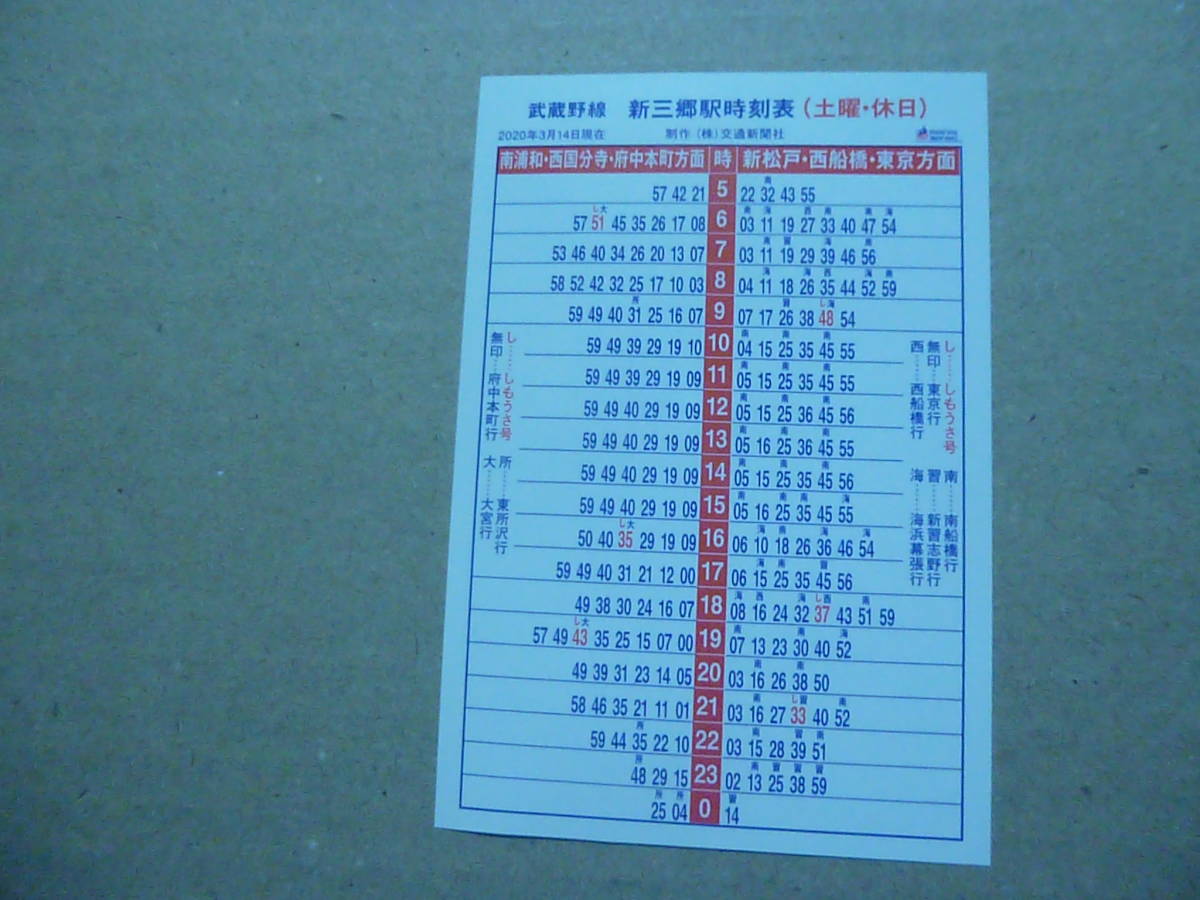 武蔵野線 新三郷駅時刻表(土曜・休日)
2020年3月14日現在 制作 (株)交通新聞社
南浦和・西国分寺・府中本町方面 時 新松戸・西船橋・東京方面
南
57 42 21 5 22 32 43 55
し大 南 海 西 南 南 海
57 51 45 35 26 17 08 6 03 11 19 27 33 40 47 54
南 習 海 南
53 46 40 34 26 20 13 07 7 03 11 19 29 39 46 56
海 海 西 海 南
58 52 42 32 25 17 10 03 8 04 11 18 26 35 44 52 59
所 習 し海
59 49 40 31 25 16 07 9 07 17 26 38 48 54
南 南 南
59 49 39 29 19 10 10 04 15 25 35 45 55
南 南 南
59 49 39 29 19 09 11 05 15 25 35 45 55
南 南 南
59 49 40 29 19 09 12 05 15 25 36 45 56
南 南 南
59 49 40 29 19 09 13 05 16 25 36 45 55
南 南 南
59 49 40 29 19 09 14 05 15 25 35 45 56
南 南 南 海
59 49 40 29 19 09 15 05 16 25 35 45 55
し大 海 南 海 海
50 40 35 29 19 09 16 06 10 18 26 36 46 54
海 南 習
59 49 40 31 21 12 00 17 06 15 25 35 45 56
海 西 海 し西 南
49 38 30 24 16 07 18 08 16 24 32 37 43 51 59
し大 南 南 海
57 49 43 35 25 15 07 00 19 07 13 23 30 40 52
南 南
49 39 31 23 14 05 20 03 16 26 38 50
南 し習 南
58 46 35 21 11 01 21 03 16 27 33 40 52
所 南 習 南
59 44 35 22 10 22 03 15 28 39 51
所 南 習 習 習
48 29 15 23 02 13 25 38 59
所 所 習
25 04 0 14
し……しもうさ号
無印…府中本町行
所……東所沢行
大……大宮行
し……しもうさ号
無印…東京行
西……西船橋行
南……南船橋行
習……新習志野行
海……海浜幕張行